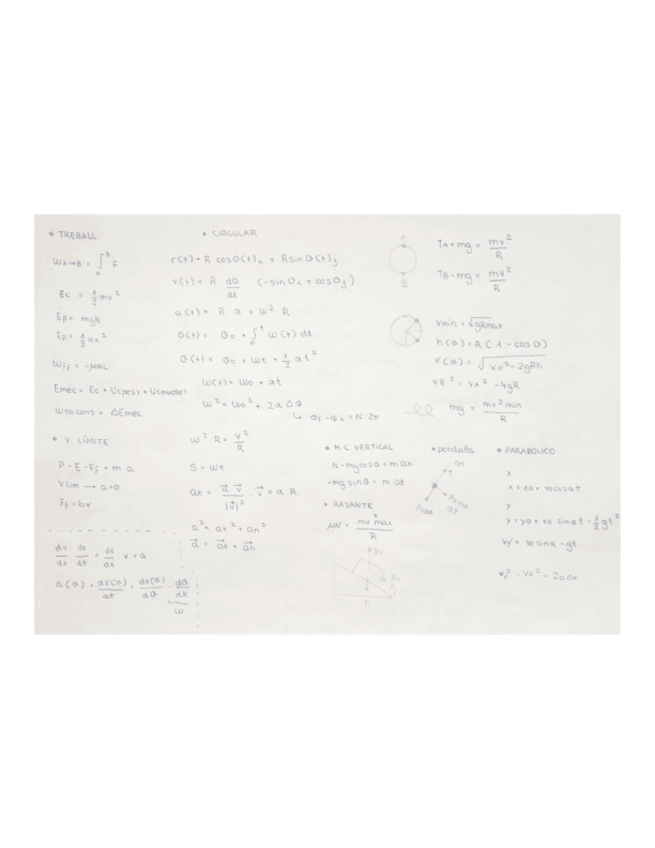 • TREBALL
W A→B = ∫_A^B F̄
Ec = 1/2 mv²
Ep = mgh
Ep = 1/2 kx²
W_Ff = -μNL
Emec = Ec + Ucpes>> + Ucmuelle>
Wno cons = ΔEmec
• V. LÍMITE
P - E - Ff = m a
V lim → a=0
Ff = bv
dv/dx · dx/dt = dv/dx · v = a
• CIRCULAR
r(t) = R cosθ(t)x + R sinθ(t)j
v(t) = R dθ/dt (-sinθx + cosθj)
a(t) = R α + ω² R
θ(t) = θo + ∫_0^t ω(t) dt
θ(t) = θo + ωt + 1/2 αt²
ω(t) = ωo + αt
ω² = ωo² + 2α Δθ
ω² R = v²/R
S = ωt
at = a⃗ v⃗ / |v⃗|² · v⃗ = α R
a² = at² + an²
a⃗ = a⃗t + a⃗n
A
B
TA + mg = mv²/R
TB - mg = mv²/R
Vmin = √gRmax
h(θ) = R(1 - cosθ)
v(θ) = √vo² - 2gRh
vB² = vA² - 4gR
mg = mv²min/R
• M.C VERTICAL
N - mgcosθ = m an
-mg sinθ = m at
• RASANTE
μN = mv²max/R
• pendula
an
T
at
• PARABOLICO
x
x = xo + vo cosα t
y
y = yo + vo sinα t - 1/2 gt²
vy = vo sinα - gt